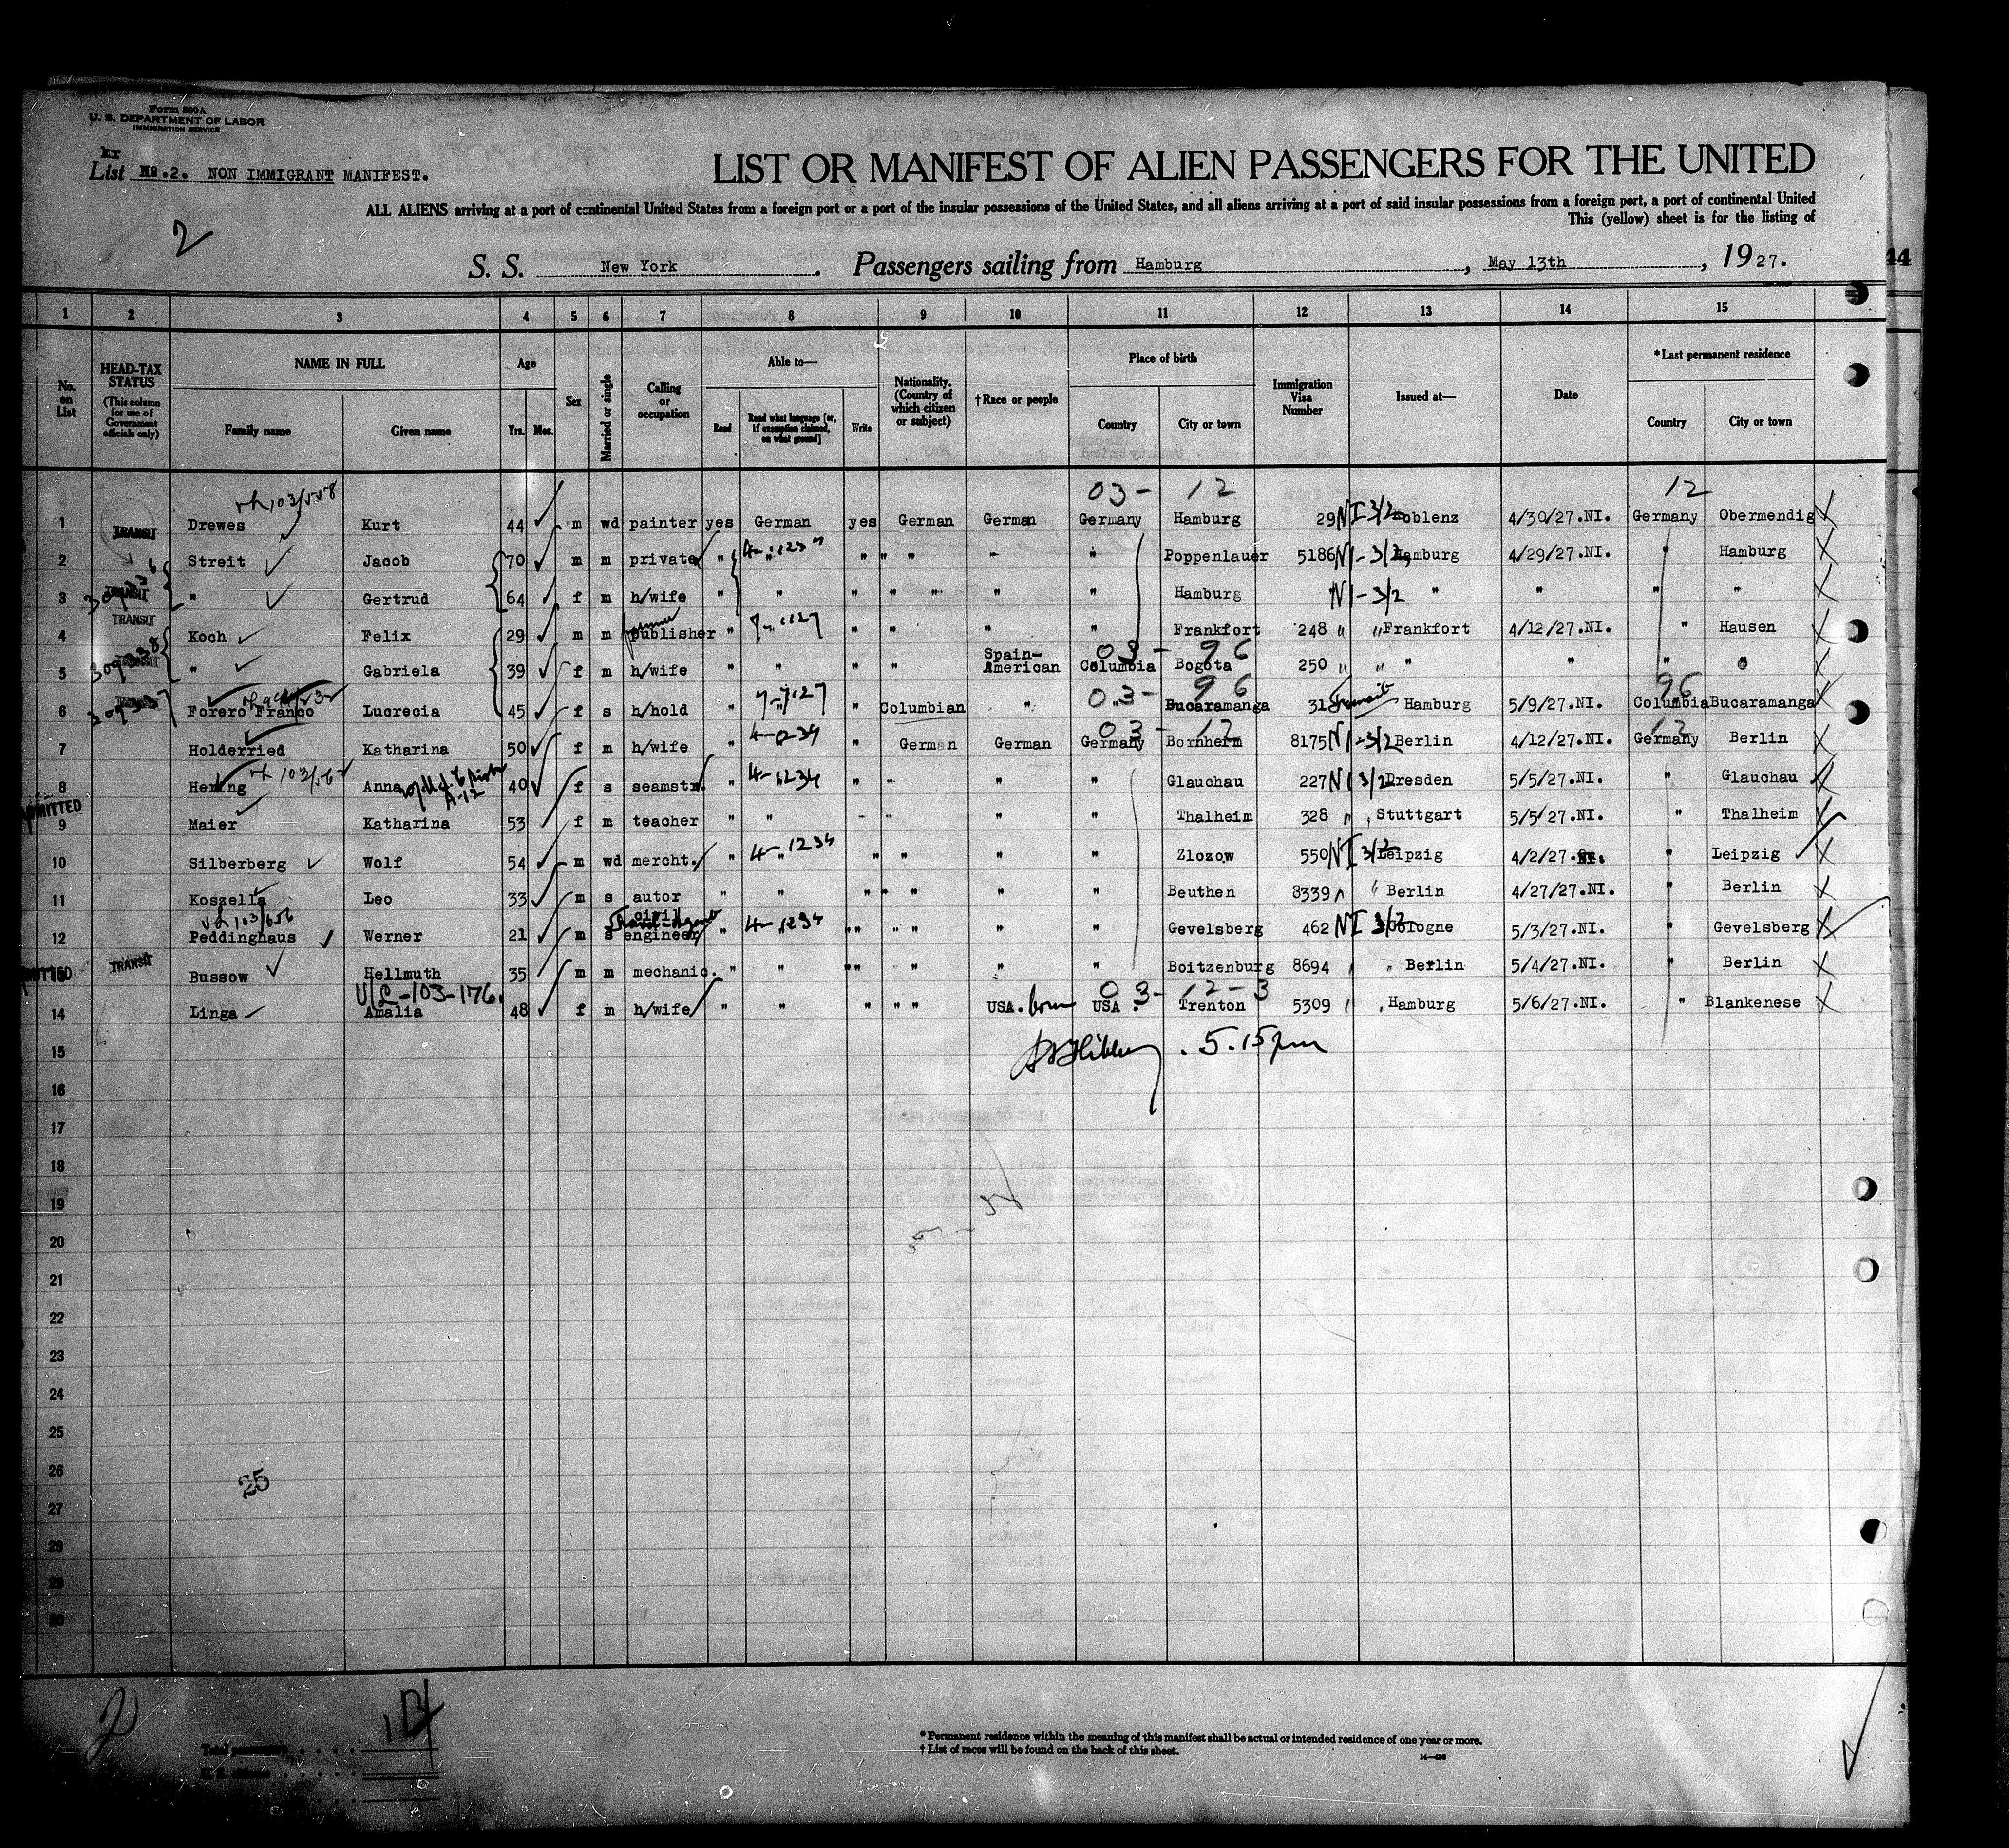 Form 500 A
U. S. DEPARTMENT OF LABOR
IMMIGRATION SERVICE
kr
List No.2. NON IMMIGRANT MANIFEST.
LIST OR MANIFEST OF ALIEN PASSENGERS FOR THE UNITED
ALL ALIENS arriving at a port of continental United States from a foreign port or a port of the insular possessions of the United States, and all aliens arriving at a port of said insular possessions from a foreign port, a port of continental United
This (yellow) sheet is for the listing of
2
S. S. New York. Passengers sailing from Hamburg, May 13th, 1927.
44
1 2 3 4 5 6 7 8 9 10 11 12 13 14 15
No. on List
HEAD-TAX STATUS (This column for use of Government officials only)
NAME IN FULL
Family name Given name
Age
Yrs. Mos.
Sex
Married or single
Calling or occupation
Able to—
Read Read what language [or, if exemption claimed, on what ground] Write
Nationality. (Country of which citizen or subject)
†Race or people
Place of birth
Country City or town
Immigration Visa Number
Issued at—
Date
*Last permanent residence
Country City or town
03- 12 12
1 TRANSIT Drewes Kurt 44 m wd painter yes German yes German German Germany Hamburg 29 NI 3/2 Koblenz 4/30/27.NI. Germany Obermendig X
2 Streit Jacob 70 m m private " " " " " " " Poppenlauer 5186 NI-3/2 Hamburg 4/29/27.NI. " Hamburg X
3 TRANSIT " Gertrud 64 f m h/wife " " " " " " " Hamburg NI-3/2 " " " " X
4 TRANSIT Koch Felix 29 m m publisher " " " " " " Frankfort 248 " " Frankfort 4/12/27.NI. " Hausen X
03- 96
5 309338 TRANSIT " Gabriela 39 f m h/wife " " " " Spain-American Columbia Bogota 250 " " " " " " X
03- 96 96
6 309337 TRANSIT Forero Franco Lucrecia 45 f s h/hold " " " Columbian " " Bucaramanga 313 Transit Hamburg 5/9/27.NI. Columbia Bucaramanga X
03- 12 12
7 Holderried Katharina 50 f m h/wife " " German German Germany Bornheim 8175 NI-3/2 Berlin 4/12/27.NI. Germany Berlin X
8 Hering Anna 40 f s seamstr. " 4-1234 " " " " Glauchau 227 NI 3/2 Dresden 5/5/27.NI. " Glauchau X
ADMITTED
9 Maier Katharina 53 f m teacher " " " " " " Thalheim 328 " " Stuttgart 5/5/27.NI. " Thalheim X
10 Silberberg Wolf 54 m wd mercht. " 4-1234 " " " " Zlozow 550 NI 3/2 Leipzig 4/2/27. " Leipzig X
11 Koszella Leo 33 m s autor " " " " " " " Beuthen 8339 " " Berlin 4/27/27.NI. " Berlin X
12 Peddinghaus Werner 21 m s civil engineer " 4-1234 " " " " " " Gevelsberg 462 NI 3/2 Cologne 5/3/27.NI. " Gevelsberg X
TRANSIT Bussow Hellmuth 35 m m mechanic. " " " " " " " Boitzenburg 8694 " " Berlin 5/4/27.NI. " Berlin X
V/L-103-176. 03- 12-3
14 Linga Amalia 48 f m h/wife " " " " " USA. born USA. Trenton 5309 " Hamburg 5/6/27.NI. " Blankenese X
15
5.15 pm
16
17
18
19
20
21
22
23
24
25
26
25
27
28
29
30
2
14
Total passengers
U. S. citizens
* Permanent residence within the meaning of this manifest shall be actual or intended residence of one year or more.
† List of races will be found on the back of this sheet.